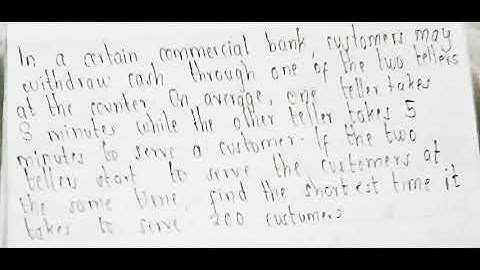 In a certain commercial bank, customers may
withdraw cash through one of the two tellers
at the counter. On average, one teller takes
3 minutes while the other teller takes 5
minutes to serve a customer. If the two
tellers start to serve the customers at
the same time, find the shortest time it
takes to serve 200 customers